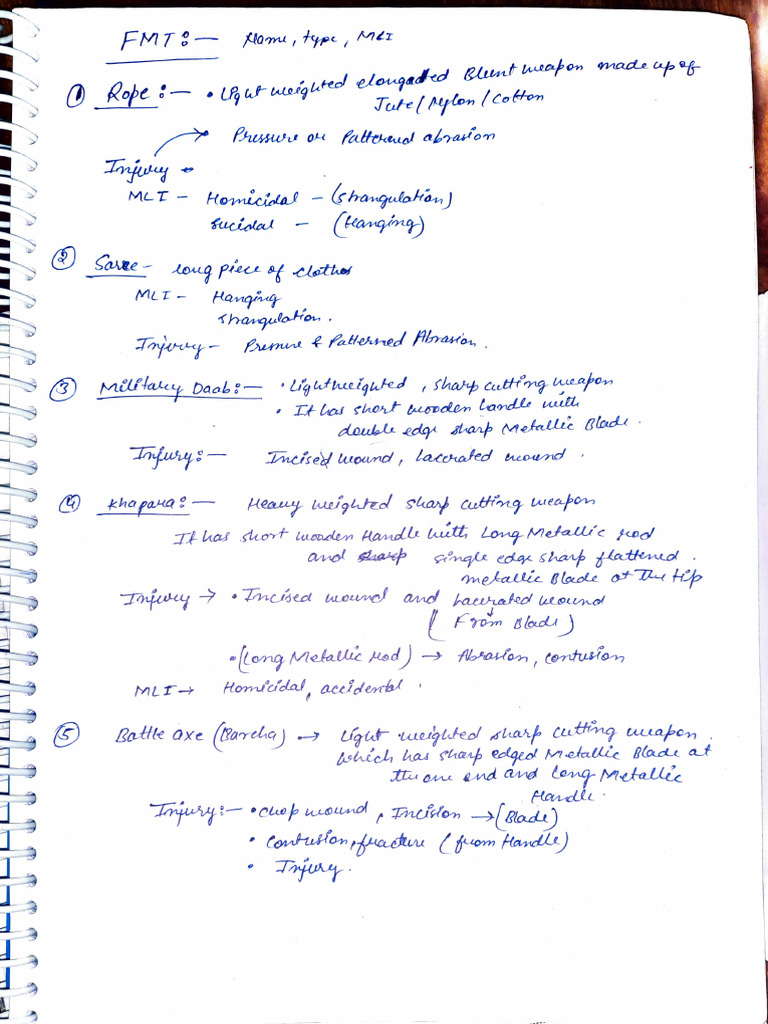 FMT:- Name, type, MLI
① Rope:- • Light weighted elongated Blunt weapon made up of
Jute/Nylon/Cotton
Pressure or Patterned abrasion
Injury
MLI - Homicidal - (strangulation)
Sucidal - (Hanging)
② Saree - long piece of clothes
MLI - Hanging
strangulation.
Injury - Pressure & Patterned Abrasion.
③ Military Daab:- • Lightweighted, sharp cutting weapon
• It has short wooden handle with
double edge sharp Metallic Blade.
Injury:- Incised wound, lacerated wound.
④ Khapara:- Heavy weighted sharp cutting weapon
It has short wooden Handle with Long Metallic rod
and sharp single edge sharp flattened.
metallic Blade at the tip
Injury → • Incised wound and lacerated wound
(From Blade)
• (Long Metallic rod) → Abrasion, contusion
MLI → Homicidal, accidental.
⑤ Battle axe (Barcha) → Light weighted sharp cutting weapon.
which has sharp edged Metallic Blade at
the one end and long Metallic
Handle.
Injury:- • chop wound, Incision → (Blade)
• Contusion, fracture (from Handle)
• Injury.